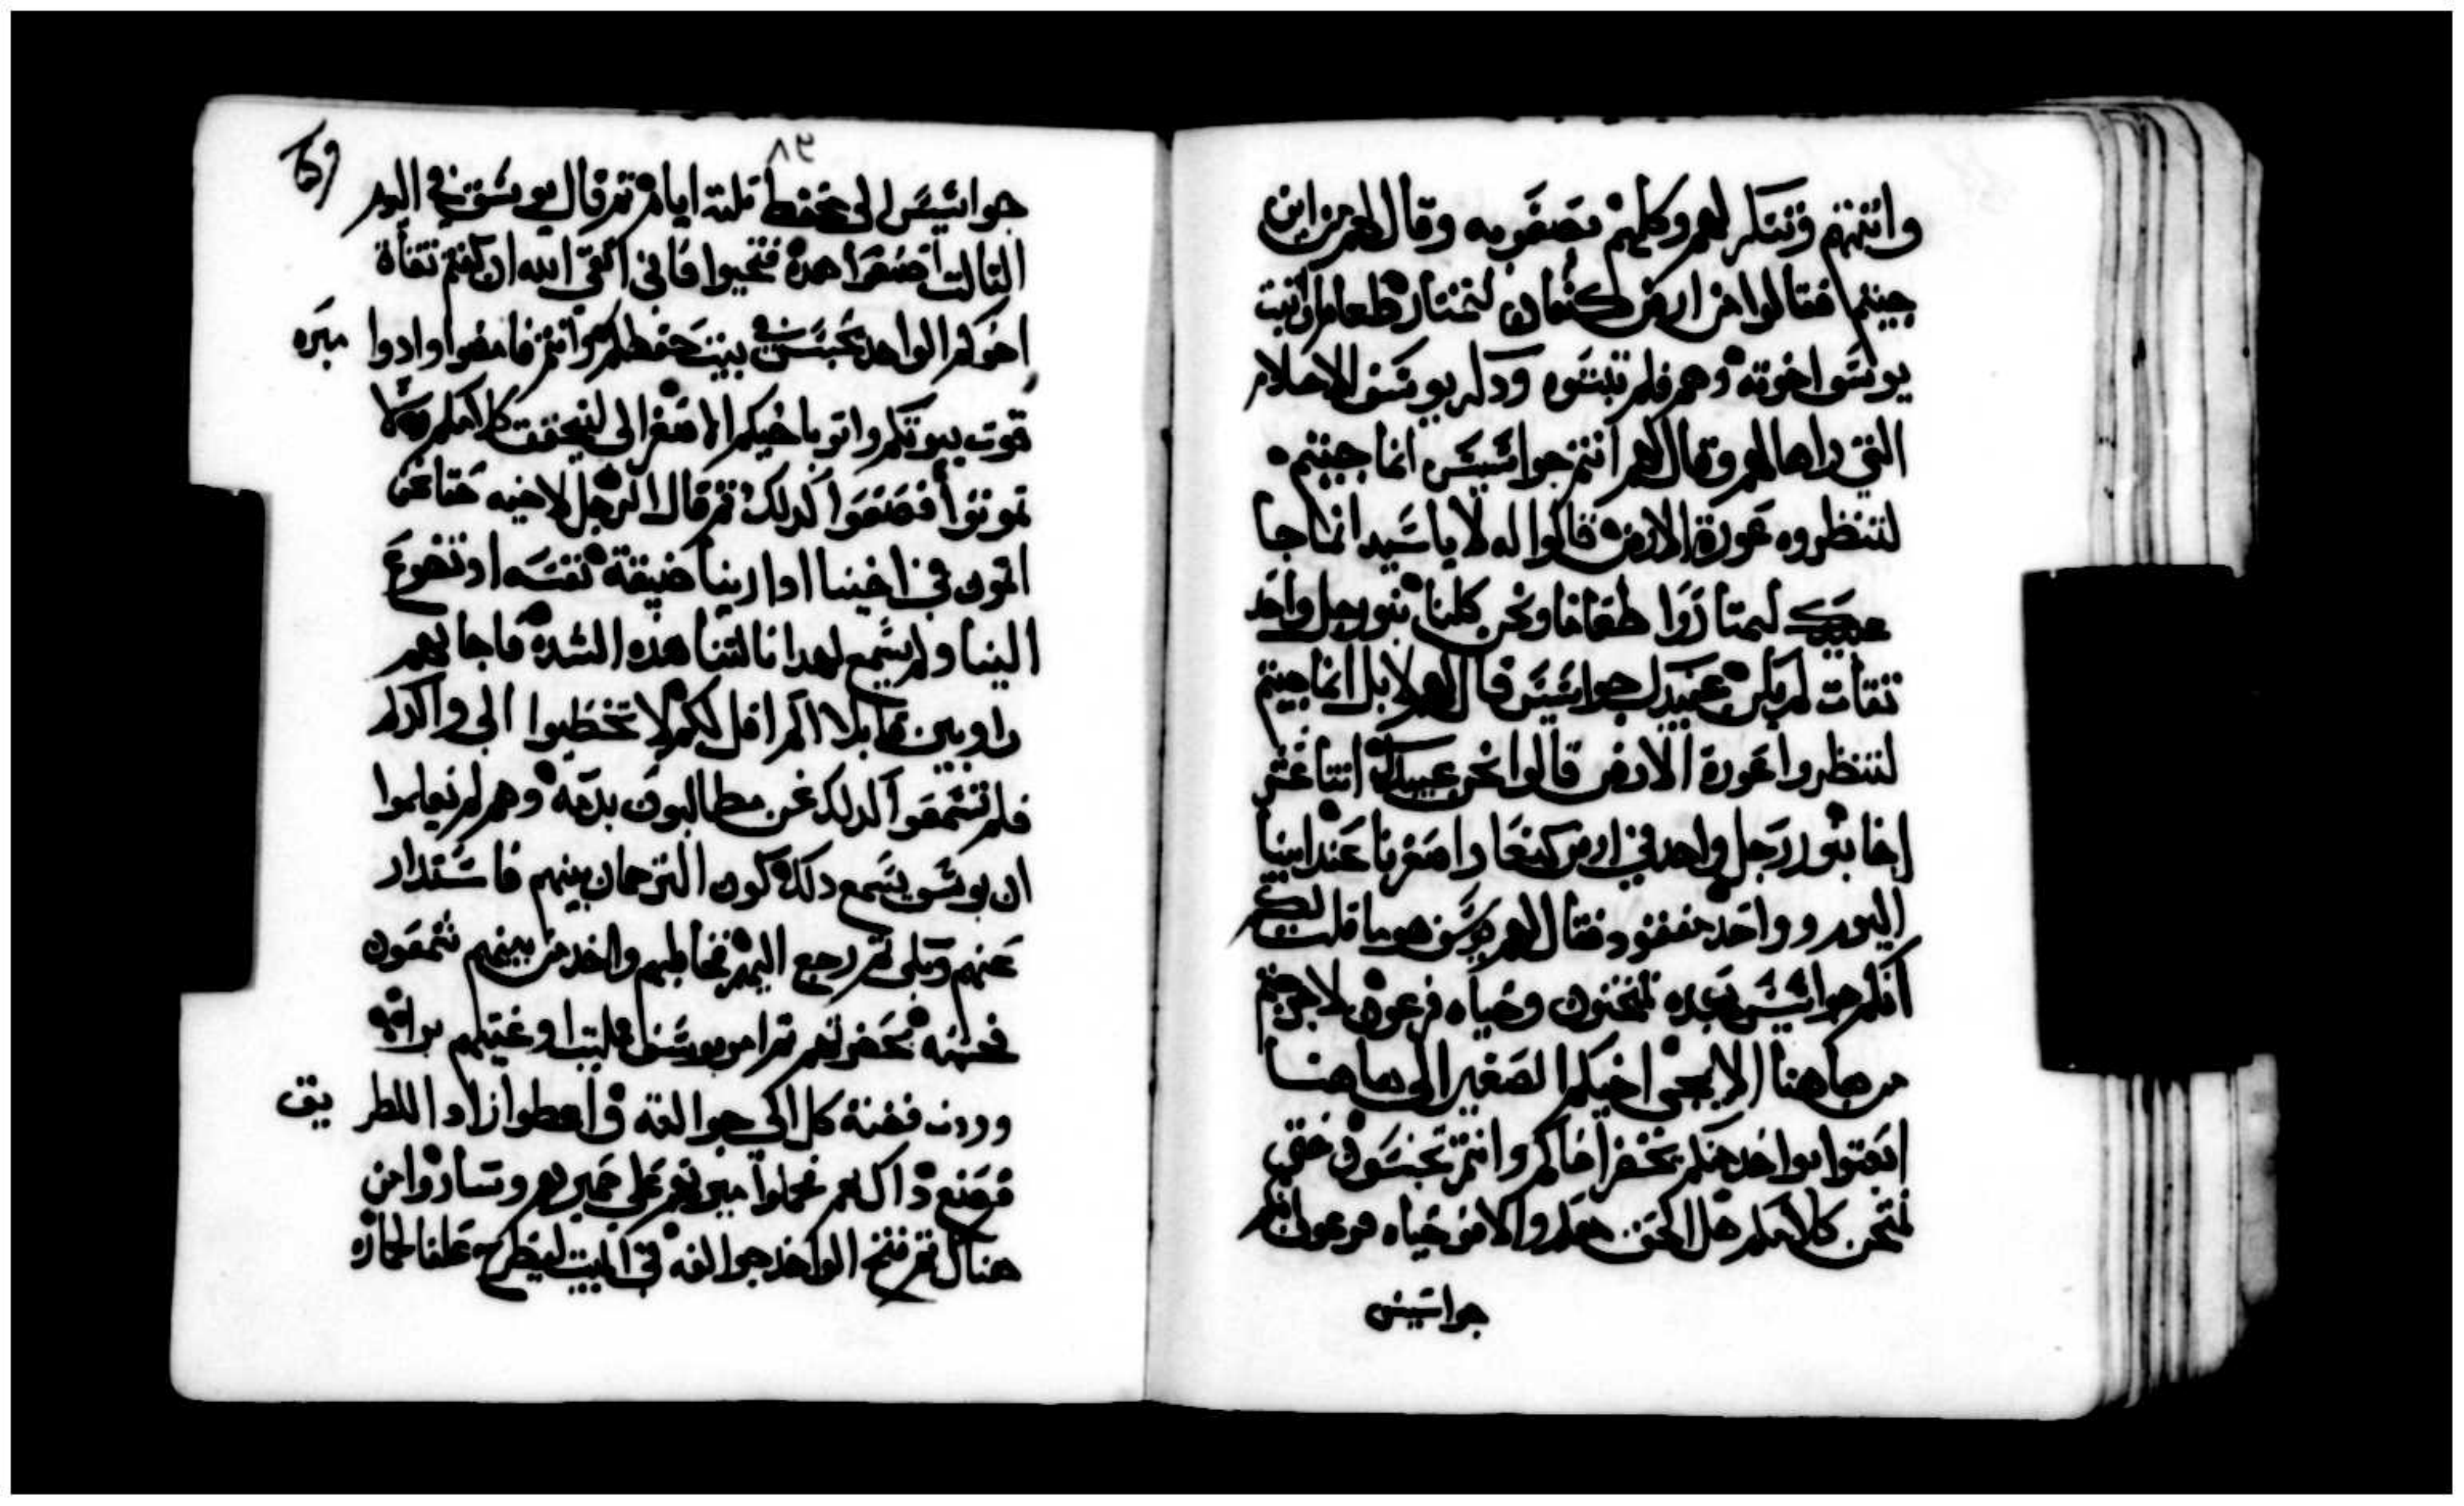 واثبتهم وتنكر لهم وكلهم بصعوبه وقال لهم من اين
جيتم فقالوا من ارض كنعان لنمتار طعاما واثبت
يوسف اخوته وهم فلم يثبتوه ودكر يوسف الاحلام
التي راها لهم وقال لهم انتم جواسيس انما جيتم
لتنظروه عورة الارض قالوا له لا يا سيد انما جا
عبيدك ليمتاروا طعاما ونحن كلنا بنو رجل واحد
تقات لم يكن عبيدك جواسيس قال لهم لا بل انما جيتم
لتنظروا عورة الارض قالوا نحن عبيدك اتنا عشر
اخا بنو رجل واحد في ارض كنعان واصغرنا عند ابينا
اليوم وواحد مفقود فقال لهم يوسف هو ما قلت لكم
انكم جواسيس بهده تمتحنون وحياه فرعون لا خرجتم
من هاهنا الا يجي اخيكم الصغير الى هاهنا
ابعتوا بواحد منكم يحضر اخاكم وانتم تحبسون حتى
نمتحن كلامكم هل الحق معكم والا فو حياه فرعون انكم
جواسيس
٨٣
جواسيس الى محفظ تلته ايام تم قال يوسف في اليوم
التالت اصنعوا هده فتحيوا فاني اتقي الله ان كنتم تقاة
اخوكم الواحد يحبس في بيت حفظكم وانتم فامضوا وادوا ميره
قوت بيوتكم واتو باخيكم الاصغر الي ليتحقق كلامكم ولا
تموتوا فصنعوا كدلك تم قال الرجل لاخيه حقا نحن
اتمون في اخينا ادا راينا ضيقة نفسه اد تضرع
الينا ولم نسمع لهدا نالتنا هده الشده فاجابهم
راوبين قايلا الم اقل لكم لا تخطيوا الى والدكم
فلم تسمعوا كدلك نحن مطالبون بدمه وهم لم يعلموا
ان يوسف يسمع دلك كون الترجمان بينهم فاستدار
عنهم وبكى تم رجع اليهم فخاطبهم واخد من بينهم شمعون
فحبسه بحضرتهم تم امر يوسف فملت اوعيتهم برا
وردت فضة كل الى جوالقه واعطوا زادا للطريق
فصنع داك لهم فحملوا ميرتهم على حميرهم وساروا من
هناك تم فتح الواحد جوالقه في المبيت ليطرح علفا لحماره